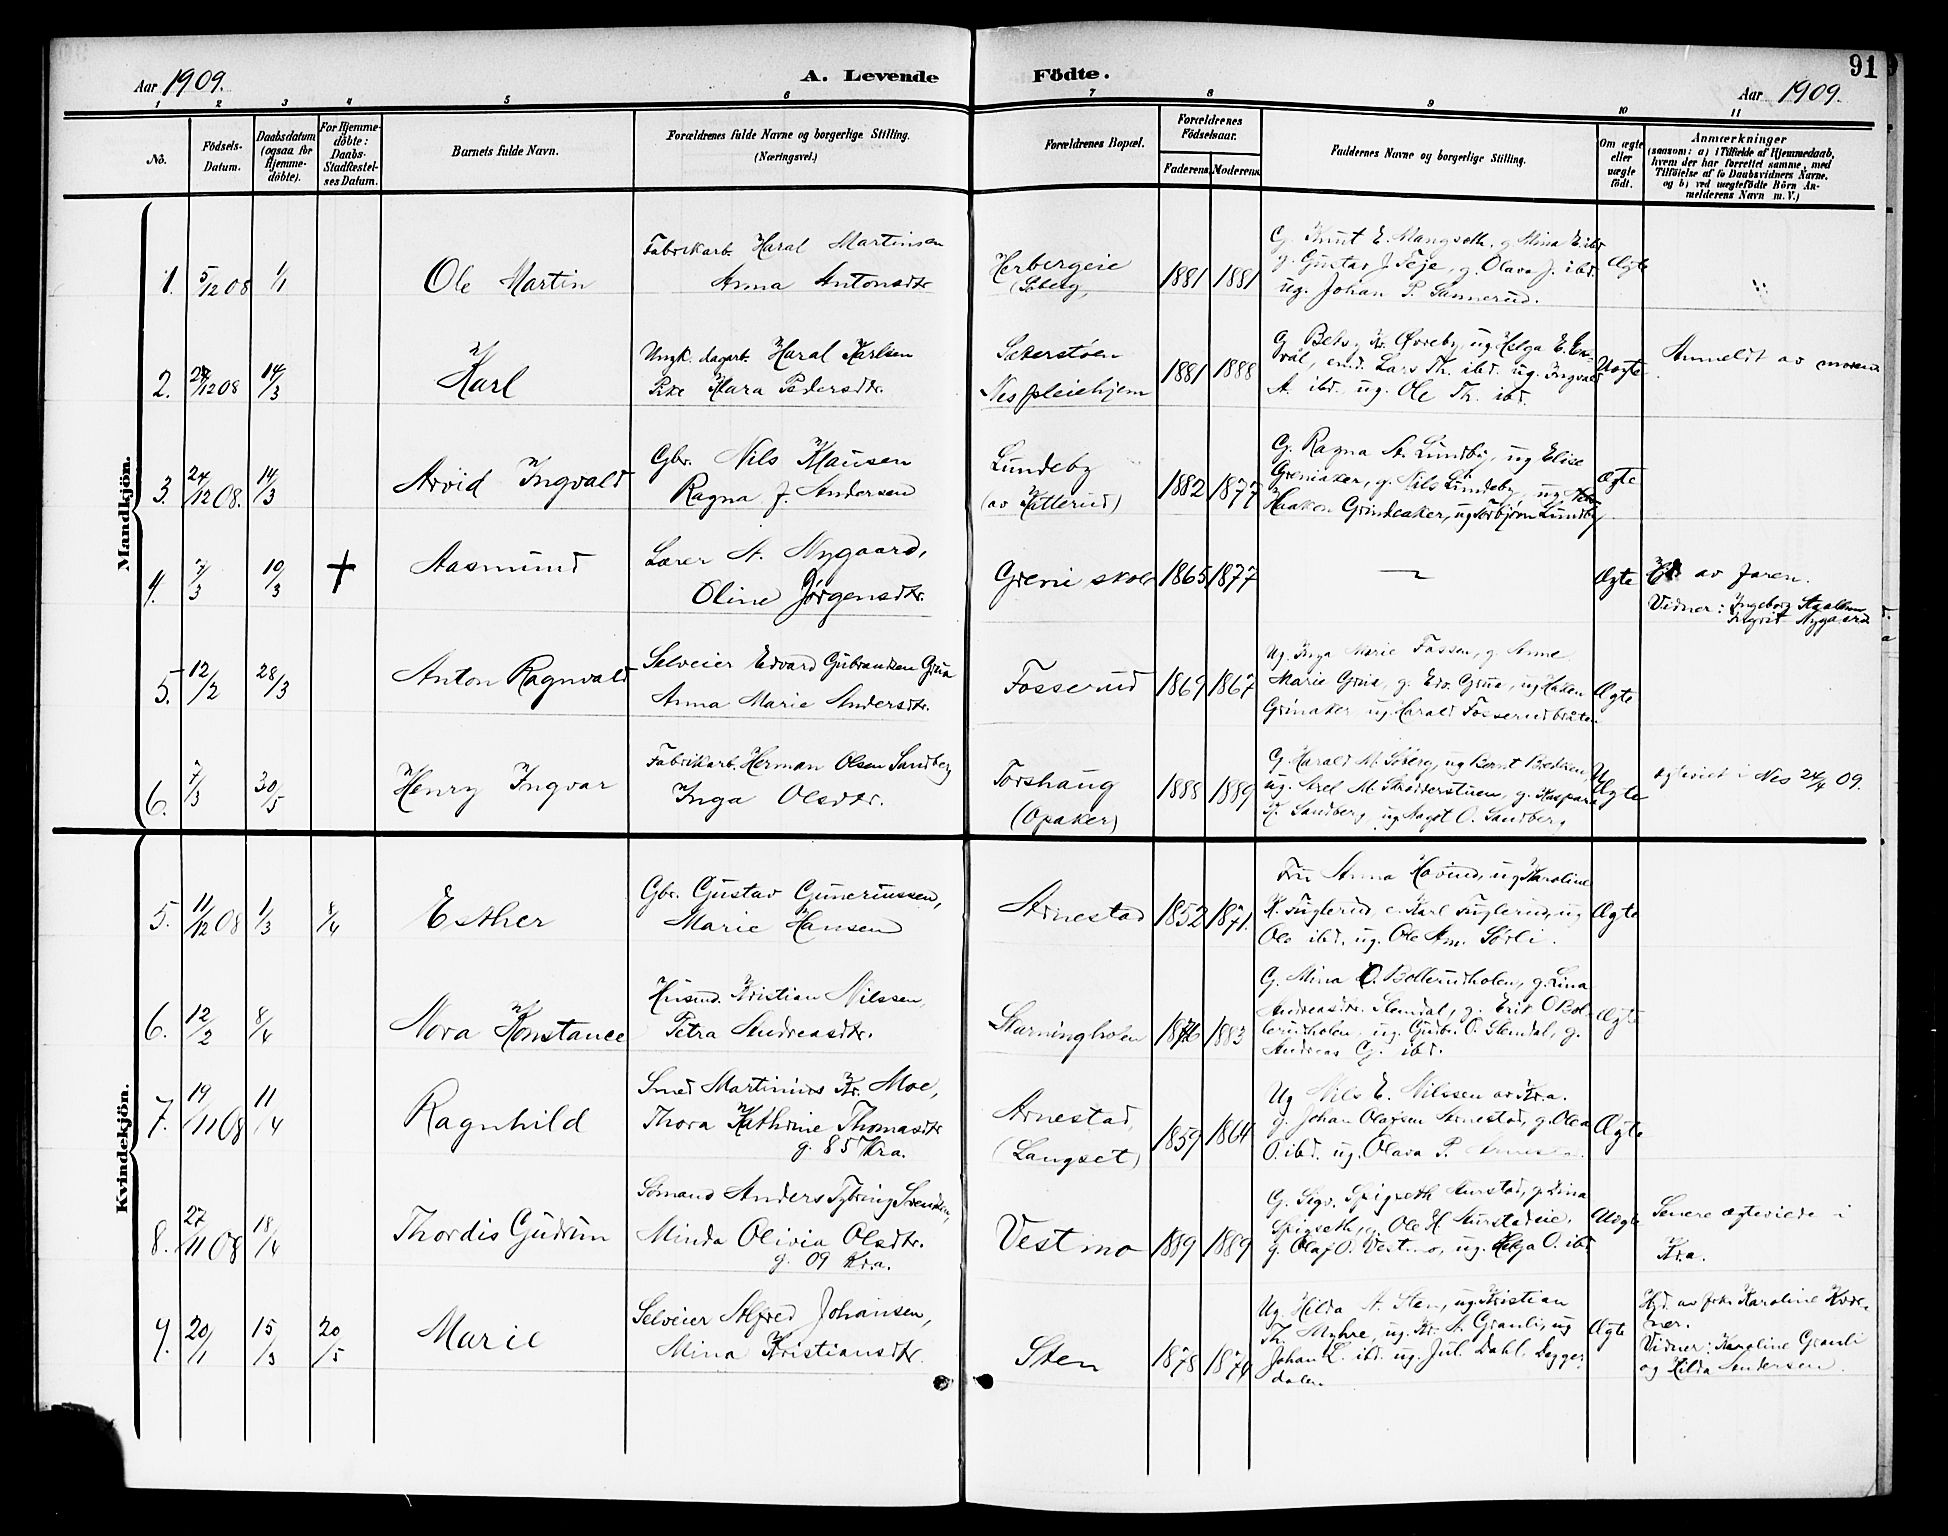 91
Aar 1909. A. Levende Födte. Aar 1909.
1 2 3 4 5 6 7 8 9 10 11
No. Födsels-Datum. Daabsdatum (ogsaa for Hjemme-döbte). For Hjemme-döbte: Daabs-Stadfæstel-ses Datum. Barnets fulde Navn. Forældrenes fulde Navne og borgerlige Stilling. (Næringsvei.) Forældrenes Bopæl. Forældrenes Födselsaar. Faderens. Moderens. Faddernes Navne og borgerlige Stilling. Om ægte eller uægte födt. Anmærkninger (saasom: a) i Tilfælde af Hjemmedaab, hvem der har forrettet samme, med Tilföielse af to Daabsvidners Navne. og b) ved uægtefödte Börn An-melderens Navn m. V.)
Mandkjön.
1. 5/12 08 1/1 Ole Martin
Fabrikarb. Haral Martinsen
Anna Antonsdtr
Herbergeie
1881 1881
G. Knut E. Mangseth. g. Mina E. ibd
g. Gustav J. Teje, g. Olava J. ibd.
ug. Johan P. Sannerud.
Ægte
2. 29/12 08 14/3 Karl
Ungk. dagarb. Haral Karlsen
Pike Klara Pedersdtr.
Sæterstøen
Nes pleiehjem
1881 1888
ibd. ug. Ingvald
A. ibd. ug. Ole Th. ibd.
Uægte
Anmeldt av moren
3. 24/12 08. 14/3 Arvid Ingvald
Gbr. Nils Klausen
Ragna J. Andersen
Lundeby
(av Katterud)
1882 1877
G. Ragna A. Lundby, ug Elise
Greniaker, g. Nils Lundeby, ug
Haakon Grindeaker, ug Torbjørn Lundby
Ægte
4. 7/3 10/3 + Aasmund
Lærer A. Nygaard,
Oline Jørgensdtr.
Greni skole
1865 1877
Ægte
av faren.
Vidner: Ingeborg
Ingrid Nygaard
5. 12/2 28/3 Anton Ragnvald
Selveier Edvard Gubrandsen Grua
Anna Marie Andersdtr.
Fosserud
1869 1867
Ug. Inga Marie Fossen, g. Anne
Marie Grua, g. Edv. Grua, ug Haken
Grinaker ug. Harald Fosserudbraten
Ægte
6. 7/3 30/5 Henry Ingvar
Fabrikarb. Herman Olsen Sandberg
Inga Olsdtr.
Torshaug
(Opaker)
1888 1889
G. Harald M. Søberg, ug Bernt Bredesen,
ug. Axel M. g. Kaspara
K. Sandberg ug Magot O. Sandberg
Uægte
ægteviet i Nes 24/4 09.
Kvindekjön.
5. 11/12 08 1/3 8/4 Esther
Gbr. Gustav Guneriussen,
Marie Hansen
Arnestad
1852 1871.
Fru Anna Hovind, ug Karoline
K. Fuglerud, e. Karl Fuglerud, ug
Ole ibd, ug. Ole Am. Sørli.
Ægte
6. 12/2 8/4 Nora Konstance
Husmd. Kristian Nilssen,
Petra Andreasdtr.
Starningholen
1876 1883
G. Mina O. Bollerudholen, g. Lina
Andreasdtr. Slemdal, g. Erik O Bol-
lerudholen, ug. Gudbr. O. Slemdal, g.
Andreas G. ibd.
Ægte
7. 19/11 08 11/4 Ragnhild
Smed Martinius Kr. Moe,
Thora Kathrine Thomasdtr
g. 85 Kra.
Arnestad,
(Langset)
1859 1864
Ug Nils E. Nilssen av Kra.
g. Johan Olafsen Arnestad, g. Olea
O. ibd. ug. Olava P.
Ægte
8. 27/11 08 18/4 Thordis Gudrun
Sømand Anders Tybring Svendsen,
Minda Olivia Olsdtr.
g. 09 Kra.
Vestmo
1889 1889
G. Sigv. Spigseth Aurstad, g. Lina
Spigseth, g. Ole H. Aurstadeie,
g. Olaf O. Vestmo, ug. Helga O. ibd
Uægte
Senere ægteviede i
Kra.
9. 20/1 15/3 20/5 Marie
Selveier Alfred Johansen,
Mina Kristiansdtr.
Sten
1878 1874
Ug Hilda A. Sten, ug. Kristian
Th. Myhre, ug. Kr. A. Granli, ug
Johan L. ibd. ug. Jul. Dahl, Dogger
dalen
Ægte
Hjd. av frk. Karoline
Vidner: Karoline Granli
og Hilda Andersen.